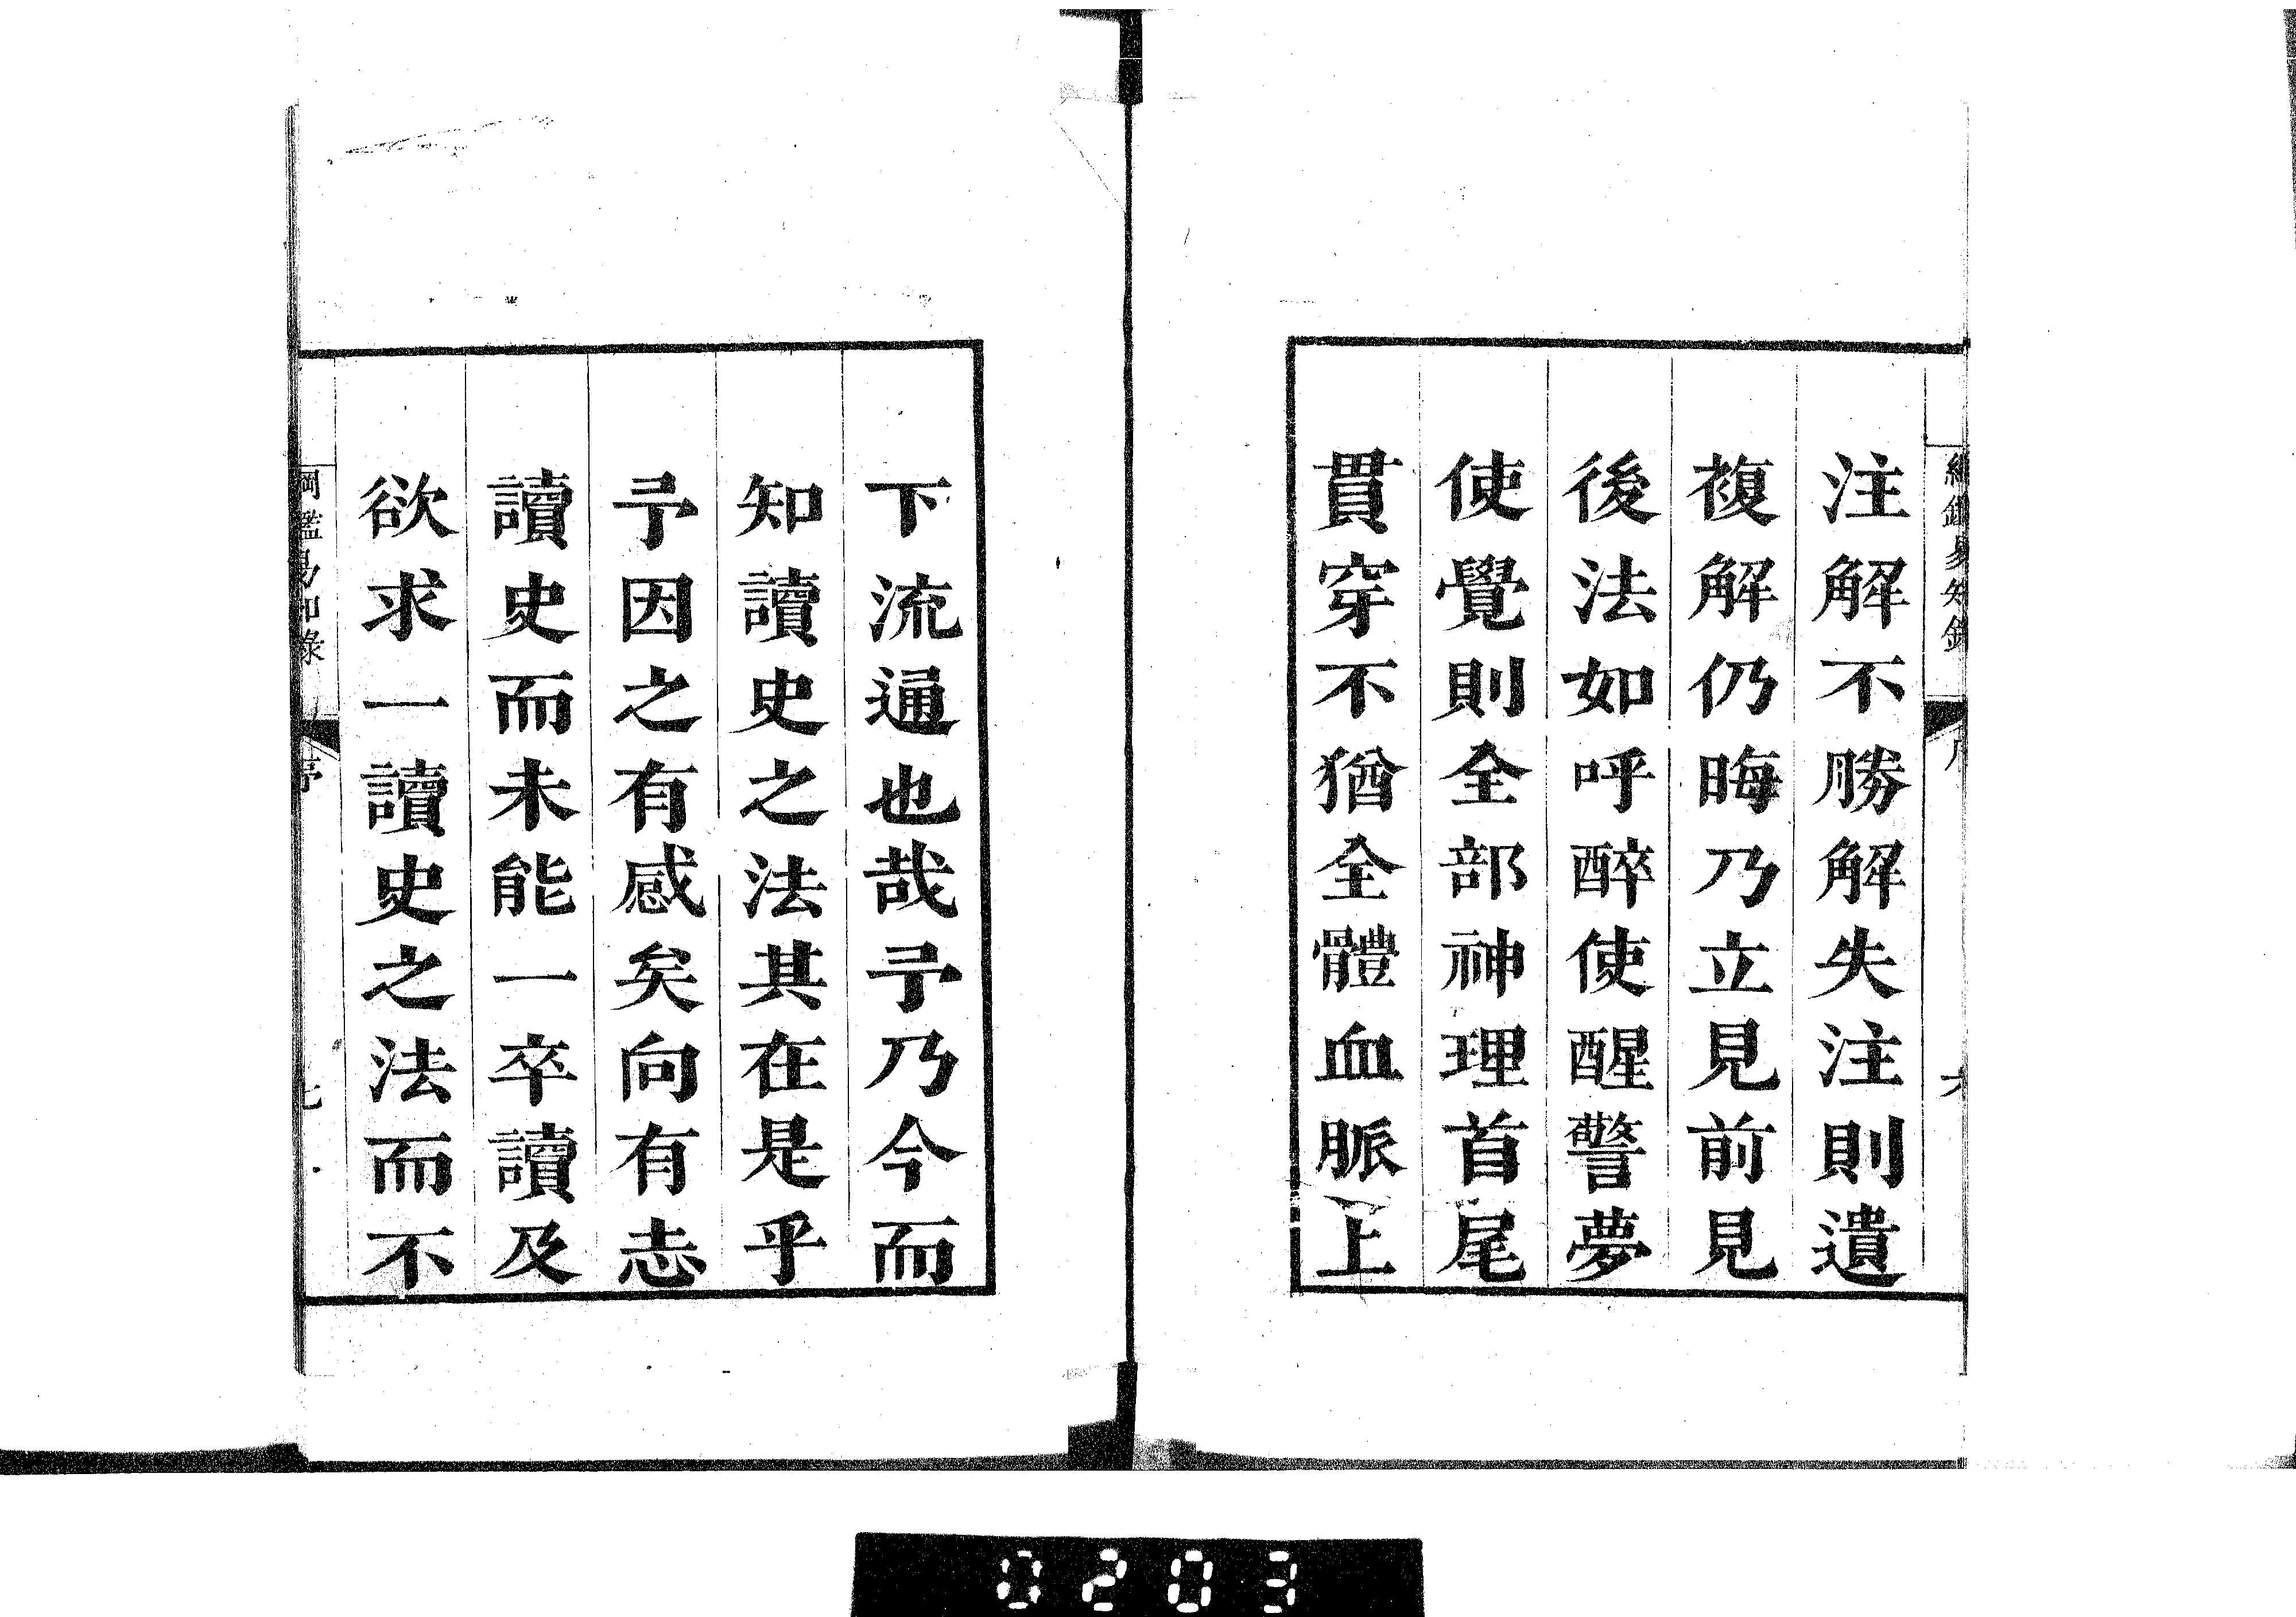 注解不勝解失注則遺
複解仍晦乃立見前見
後法如呼醉使醒警夢
使覺則全部神理首尾
貫穿不猶全體血脈上
下流通也哉予乃今而
知讀史之法其在是乎
予因之有感矣向有志
讀史而未能一卒讀及
欲求一讀史之法而不
綱鑑易知錄
0203